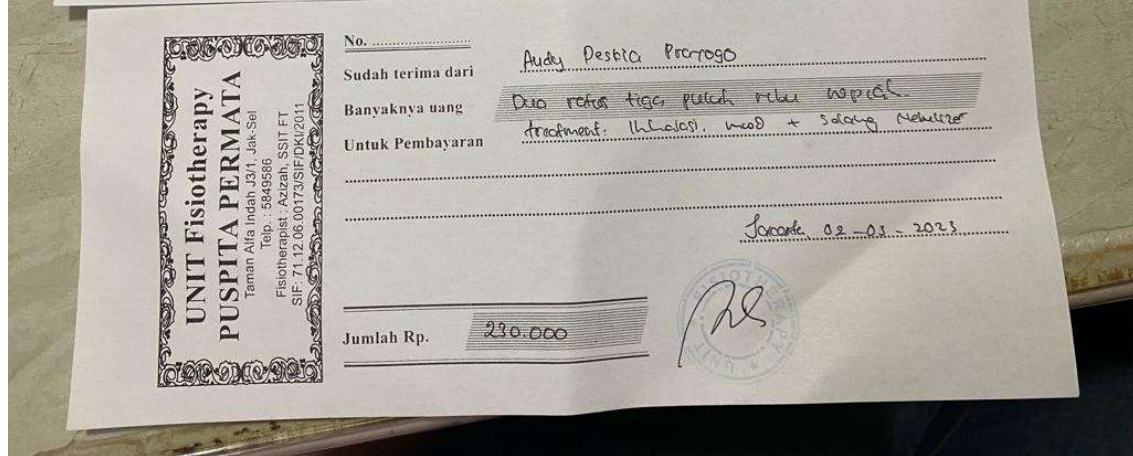 UNIT Fisiotherapy
PUSPITA PERMATA
Taman Alfa Indah J3/1, Jak-Sel
Telp. : 5849586
Fisiotherapist : Azizah, SSIT FT
SIF: 71.12.06.00173/SIF/DKI/2011
No.
Sudah terima dari Audy Pesbia Prayogo
Banyaknya uang Dua ratus tiga puluh ribu rupiah.
Untuk Pembayaran treatment: Inhalasi, + Selang Nebulizer
Jakarta, 02-03-2023
Jumlah Rp. 230.000
UNIT FISIOTHERAPY